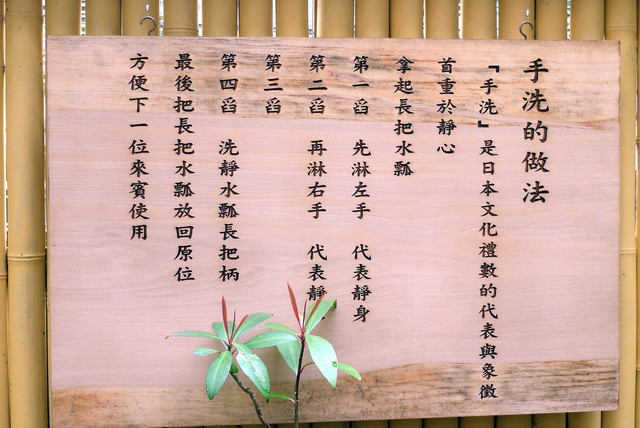 手洗的做法
『手洗』是日本文化禮數的代表與象徵
首重於靜心
拿起長把水瓢
第一舀 先淋左手 代表靜身
第二舀 再淋右手 代表靜
第三舀
第四舀 洗靜水瓢長把柄
最後把長把水瓢放回原位
方便下一位來賓使用